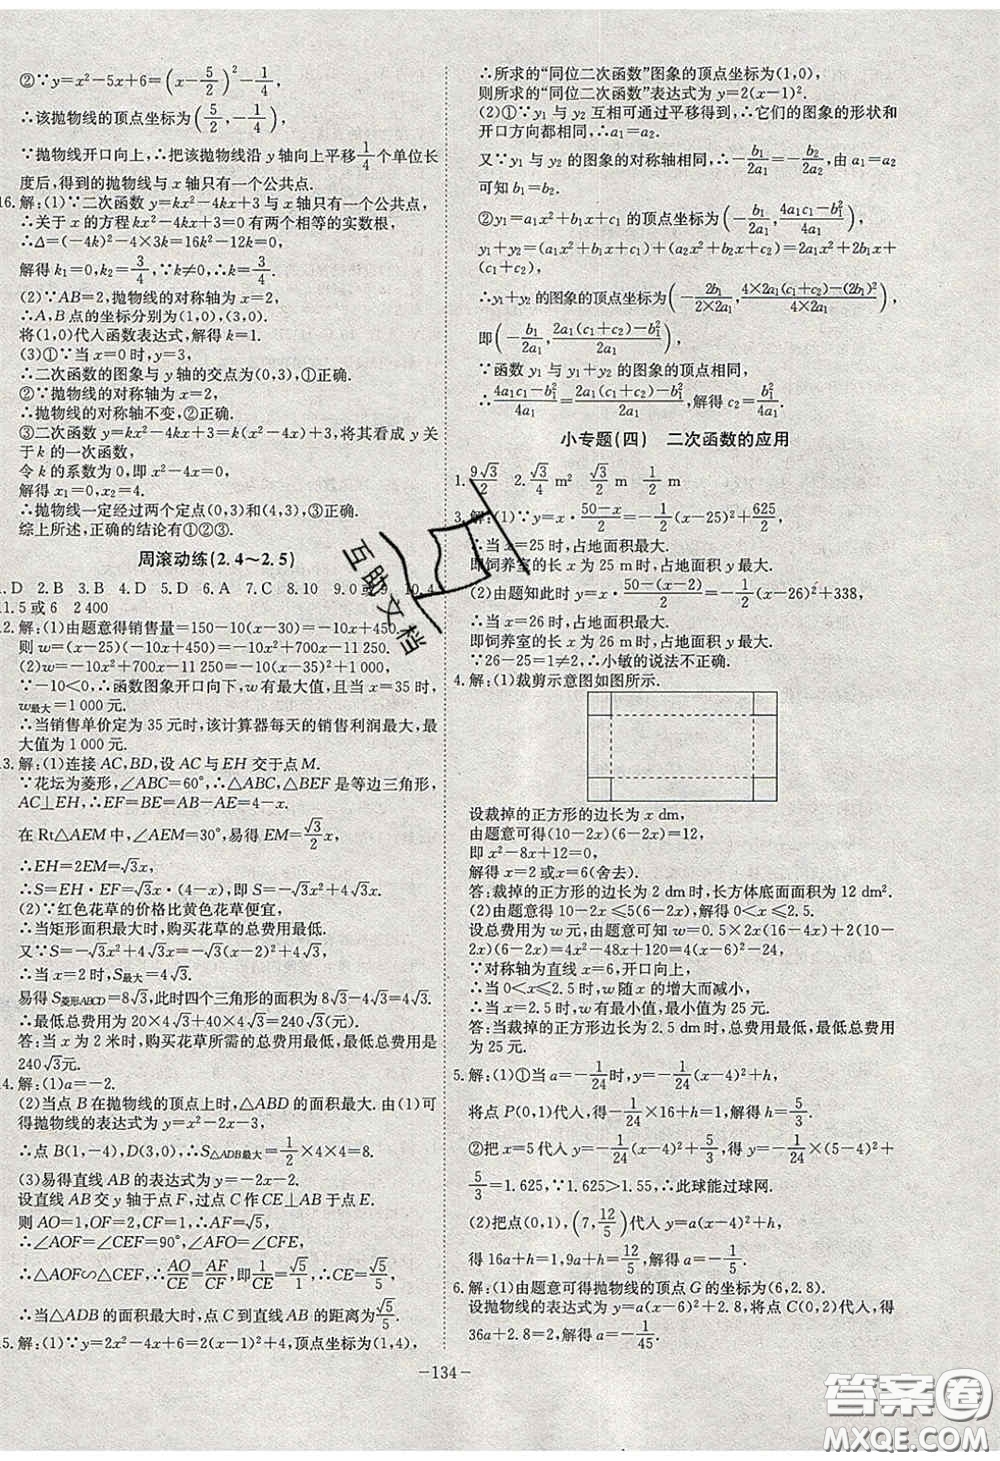 ②∵y=x²-5x+6=(x-5/2)²-1/4,
∴该抛物线的顶点坐标为(5/2,-1/4),
∵抛物线开口向上,∴把该抛物线沿y轴向上平移1/4个单位长
度后,得到的抛物线与x轴只有一个公共点.
16.解:(1)∵二次函数y=kx²-4kx+3与x轴只有一个公共点,
∴关于x的方程kx²-4kx+3=0有两个相等的实数根,
∴Δ=(-4k)²-4×3k=16k²-12k=0,
解得k₁=0,k₂=3/4,∵k≠0,∴k=3/4.
(2)∵AB=2,抛物线的对称轴为x=2,
∴A,B点的坐标分别为(1,0),(3,0).
将(1,0)代入函数表达式,解得k=1.
(3)①∵当x=0时,y=3,
∴二次函数的图象与y轴的交点为(0,3),①正确.
②∵抛物线的对称轴为x=2,
∴抛物线的对称轴不变,②正确.
③二次函数y=kx²-4kx+3=k(x²-4x)+3,将其看成y关
于k的一次函数,
令k的系数为0,即x²-4x=0,
解得x₁=0,x₂=4.
∴抛物线一定经过两个定点(0,3)和(4,3),③正确.
综上所述,正确的结论有①②③.
周滚动练(2.4~2.5)
1.D 2.B 3.B 4.D 5.D 6.A 7.C 8.10 9.0或9 10.4
11.5或6 2 400
12.解:(1)由题意得销售量=150-10(x-30)=-10x+450,
则w=(x-25)(-10x+450)=-10x²+700x-11 250.
(2)w=-10x²+700x-11 250=-10(x-35)²+1 000,
∵-10<0,∴函数图象开口向下,w有最大值,且当x=35时,
w最大=1 000元.
∴当销售单价定为35元时,该计算器每天的销售利润最大,最
大值为1 000元.
13.解:(1)连接AC,BD,设AC与EH交于点M.
∵花坛为菱形,∠ABC=60°,∴△ABC,△BEF是等边三角形,
AC⊥EH,∴EF=BE=AB-AE=4-x.
在Rt△AEM中,∠AEM=30°,易得EM=√3/2 x,
∴EH=2EM=√3x,
∴S=EH·EF=√3x·(4-x),即S=-√3x²+4√3x.
(2)∵红色花草的价格比黄色花草便宜,
∴当矩形面积最大时,购买花草的总费用最低.
又∵S=-√3x²+4√3x=-√3(x-2)²+4√3,
∴当x=2时,S最大=4√3.
易得S菱形ABCD=8√3,此时四个三角形的面积为8√3-4√3=4√3.
∴最低总费用为20×4√3+40×4√3=240√3(元).
答:当x为2米时,购买花草所需的总费用最低,最低总费用是
240√3元.
14.解:(1)a=-2.
(2)当点B在抛物线的顶点上时,△ABD的面积最大.由(1)可
得抛物线的表达式为y=x²-2x-3,
∴点B(1,-4),D(3,0),∴S△ADB最大=1/2×4×4=8.
(3)易得直线AB的表达式为y=-2x-2.
设直线AB交y轴于点F,过点C作CE⊥AB于点E.
则AO=1,OF=2,CF=1,∴AF=√5,
∴∠AOF=∠CEF=90°,∠AFO=∠CFE,
∴△AOF∽△CEF,∴AO/CE=AF/CF,即1/CE=√5/1,∴CE=√5/5,
∴当△ADB的面积最大时,点C到直线AB的距离为√5/5.
15.解:(1)∵y=2x²-4x+6=2(x-1)²+4,顶点坐标为(1,4),
∴所求的“同位二次函数”图象的顶点坐标为(1,0),
则所求的“同位二次函数”表达式为y=2(x-1)².
(2)①∵y₁与y₂互相可通过平移得到,∴它们的图象的形状和
开口方向都相同,∴a₁=a₂.
又∵y₁与y₂的图象的对称轴相同,∴-b₁/2a₁=-b₂/2a₂,由a₁=a₂
可知b₁=b₂.
②∵y₁=a₁x²+b₁x+c₁的顶点坐标为(-b₁/2a₁,(4a₁c₁-b₁²)/4a₁),
y₁+y₂=(a₁x²+b₁x+c₁)+(a₂x²+b₂x+c₂)=2a₁x²+2b₁x+
(c₁+c₂),
∴y₁+y₂的图象的顶点坐标为(-2b₁/(2×2a₁),(4×2a₁(c₁+c₂)-(2b₁)²)/(4×2a₁)),
即(-b₁/2a₁,(2a₁(c₁+c₂)-b₁²)/2a₁).
∵函数y₁与y₁+y₂的图象的顶点相同,
∴(4a₁c₁-b₁²)/4a₁=(2a₁(c₁+c₂)-b₁²)/2a₁,解得c₂=b₁²/4a₁.
小专题(四) 二次函数的应用
1.9√3/2 2.√3/4 m² √3/2 m 1/2 m
3.解:(1)∵y=x·(50-x)/2=-1/2(x-25)²+625/2,
∴当x=25时,占地面积最大.
即饲养室的长x为25 m时,占地面积最大.
(2)由题知此时y=x·(50-(x-2))/2=-1/2(x-26)²+338,
∴当x=26时,占地面积最大.
即饲养室的长x为26 m时,占地面积最大.
∵26-25=1≠2,∴小敏的说法不正确.
4.解:(1)裁剪示意图如图所示.
设裁掉的正方形的边长为x dm,
由题意可得(10-2x)(6-2x)=12,
即x²-8x+12=0,
解得x=2或x=6(舍去).
答:裁掉的正方形的边长为2 dm时,长方体底面面积为12 dm².
(2)由题意得10-2x≤5(6-2x),解得0<x≤2.5.
设总费用为w元,由题意可知w=0.5×2x(16-4x)+2(10-
2x)(6-2x)=4x²-48x+120=4(x-6)²-24,
∵对称轴为直线x=6,开口向上,
∴当0<x≤2.5时,w随x的增大而减小,
∴当x=2.5时,w有最小值,最小值为25.
答:当裁掉的正方形的边长为2.5 dm时,总费用最低,最低费用
为25元.
5.解:(1)①当a=-1/24时,y=-1/24(x-4)²+h,
将点P(0,1)代入,得-1/24×16+h=1,解得h=5/3.
②把x=5代入y=-1/24(x-4)²+5/3,得y=-1/24×(5-4)²+
5/3=1.625,∵1.625>1.55,∴此球能过球网.
(2)把点(0,1),(7,12/5)代入y=a(x-4)²+h,
得16a+h=1,9a+h=12/5,解得a=-1/5.
6.解:(1)由题意可得抛物线的顶点G的坐标为(6,2.8).
设抛物线的表达式为y=a(x-6)²+2.8,将点C(0,2)代入,得
36a+2.8=2,解得a=-1/45.
-134-
互助文档
答案圈
MXQE.COM